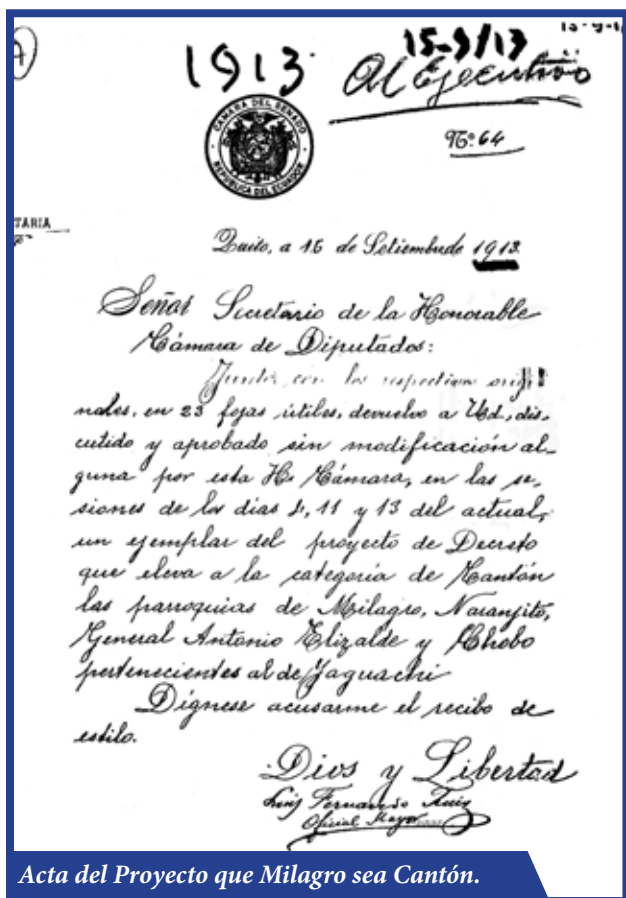 15-9-1
1913.
15-9/13
Al Ejecutivo
Nº 64
CAMARA DEL SENADO
REPUBLICA DEL ECUADOR
TARIA
Quito, a 15 de Setiembre de 1913
Señor Secretario de la Honorable
Cámara de Diputados:
Juntos con los respectivos origi
nales, en 23 fojas útiles, devuelvo a Ud, dis-
cutido y aprobado sin modificación al-
guna por esta H. Cámara, en las se-
siones de los días 11 y 13 del actual,
un ejemplar del proyecto de Decreto
que eleva a la categoría de Cantón
las parroquias de Milagro, Naranjito,
General Antonio Elizalde y Chobo
pertenecientes al de Yaguachi
Dígnese acusarme el recibo de
estilo.
Dios y Libertad
Luis Fernando Ruiz
Oficial Mayor
Acta del Proyecto que Milagro sea Cantón.